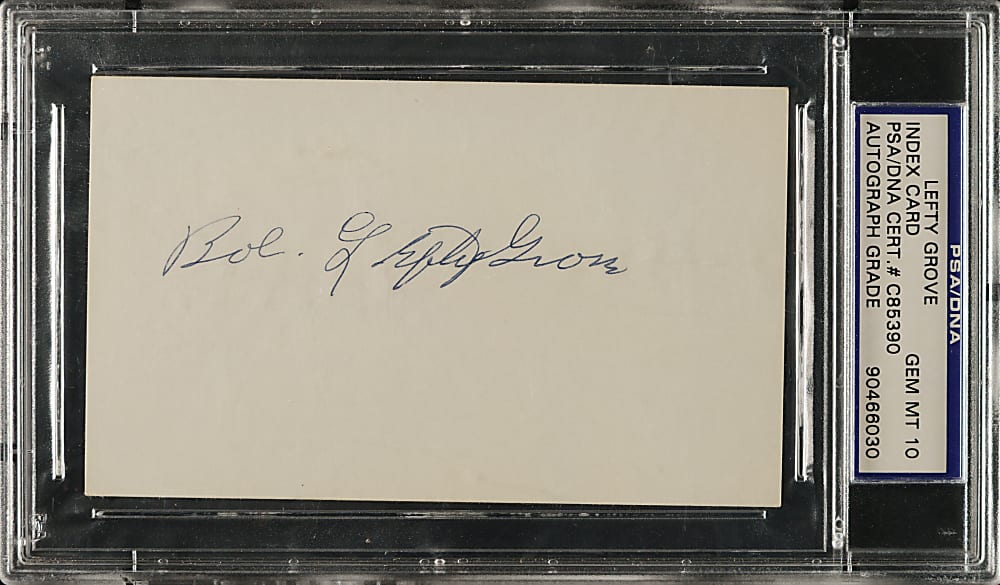 Bob. Lefty Grove
PSA/DNA
LEFTY GROVE
INDEX CARD GEM MT 10
PSA/DNA CERT.# C85390
AUTOGRAPH GRADE 90466030